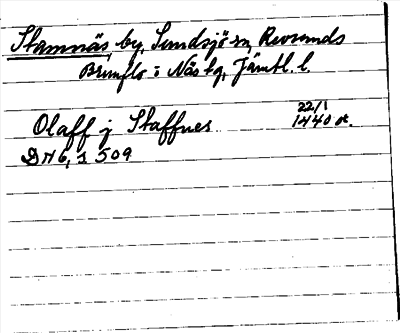 Stamnäs, by, Sundsjö sn, Revsunds
Brunflo o Näs tg, Jämtl. l.
Olaff j Staffnes 22/1 1440 ot.
DN 6, s 509